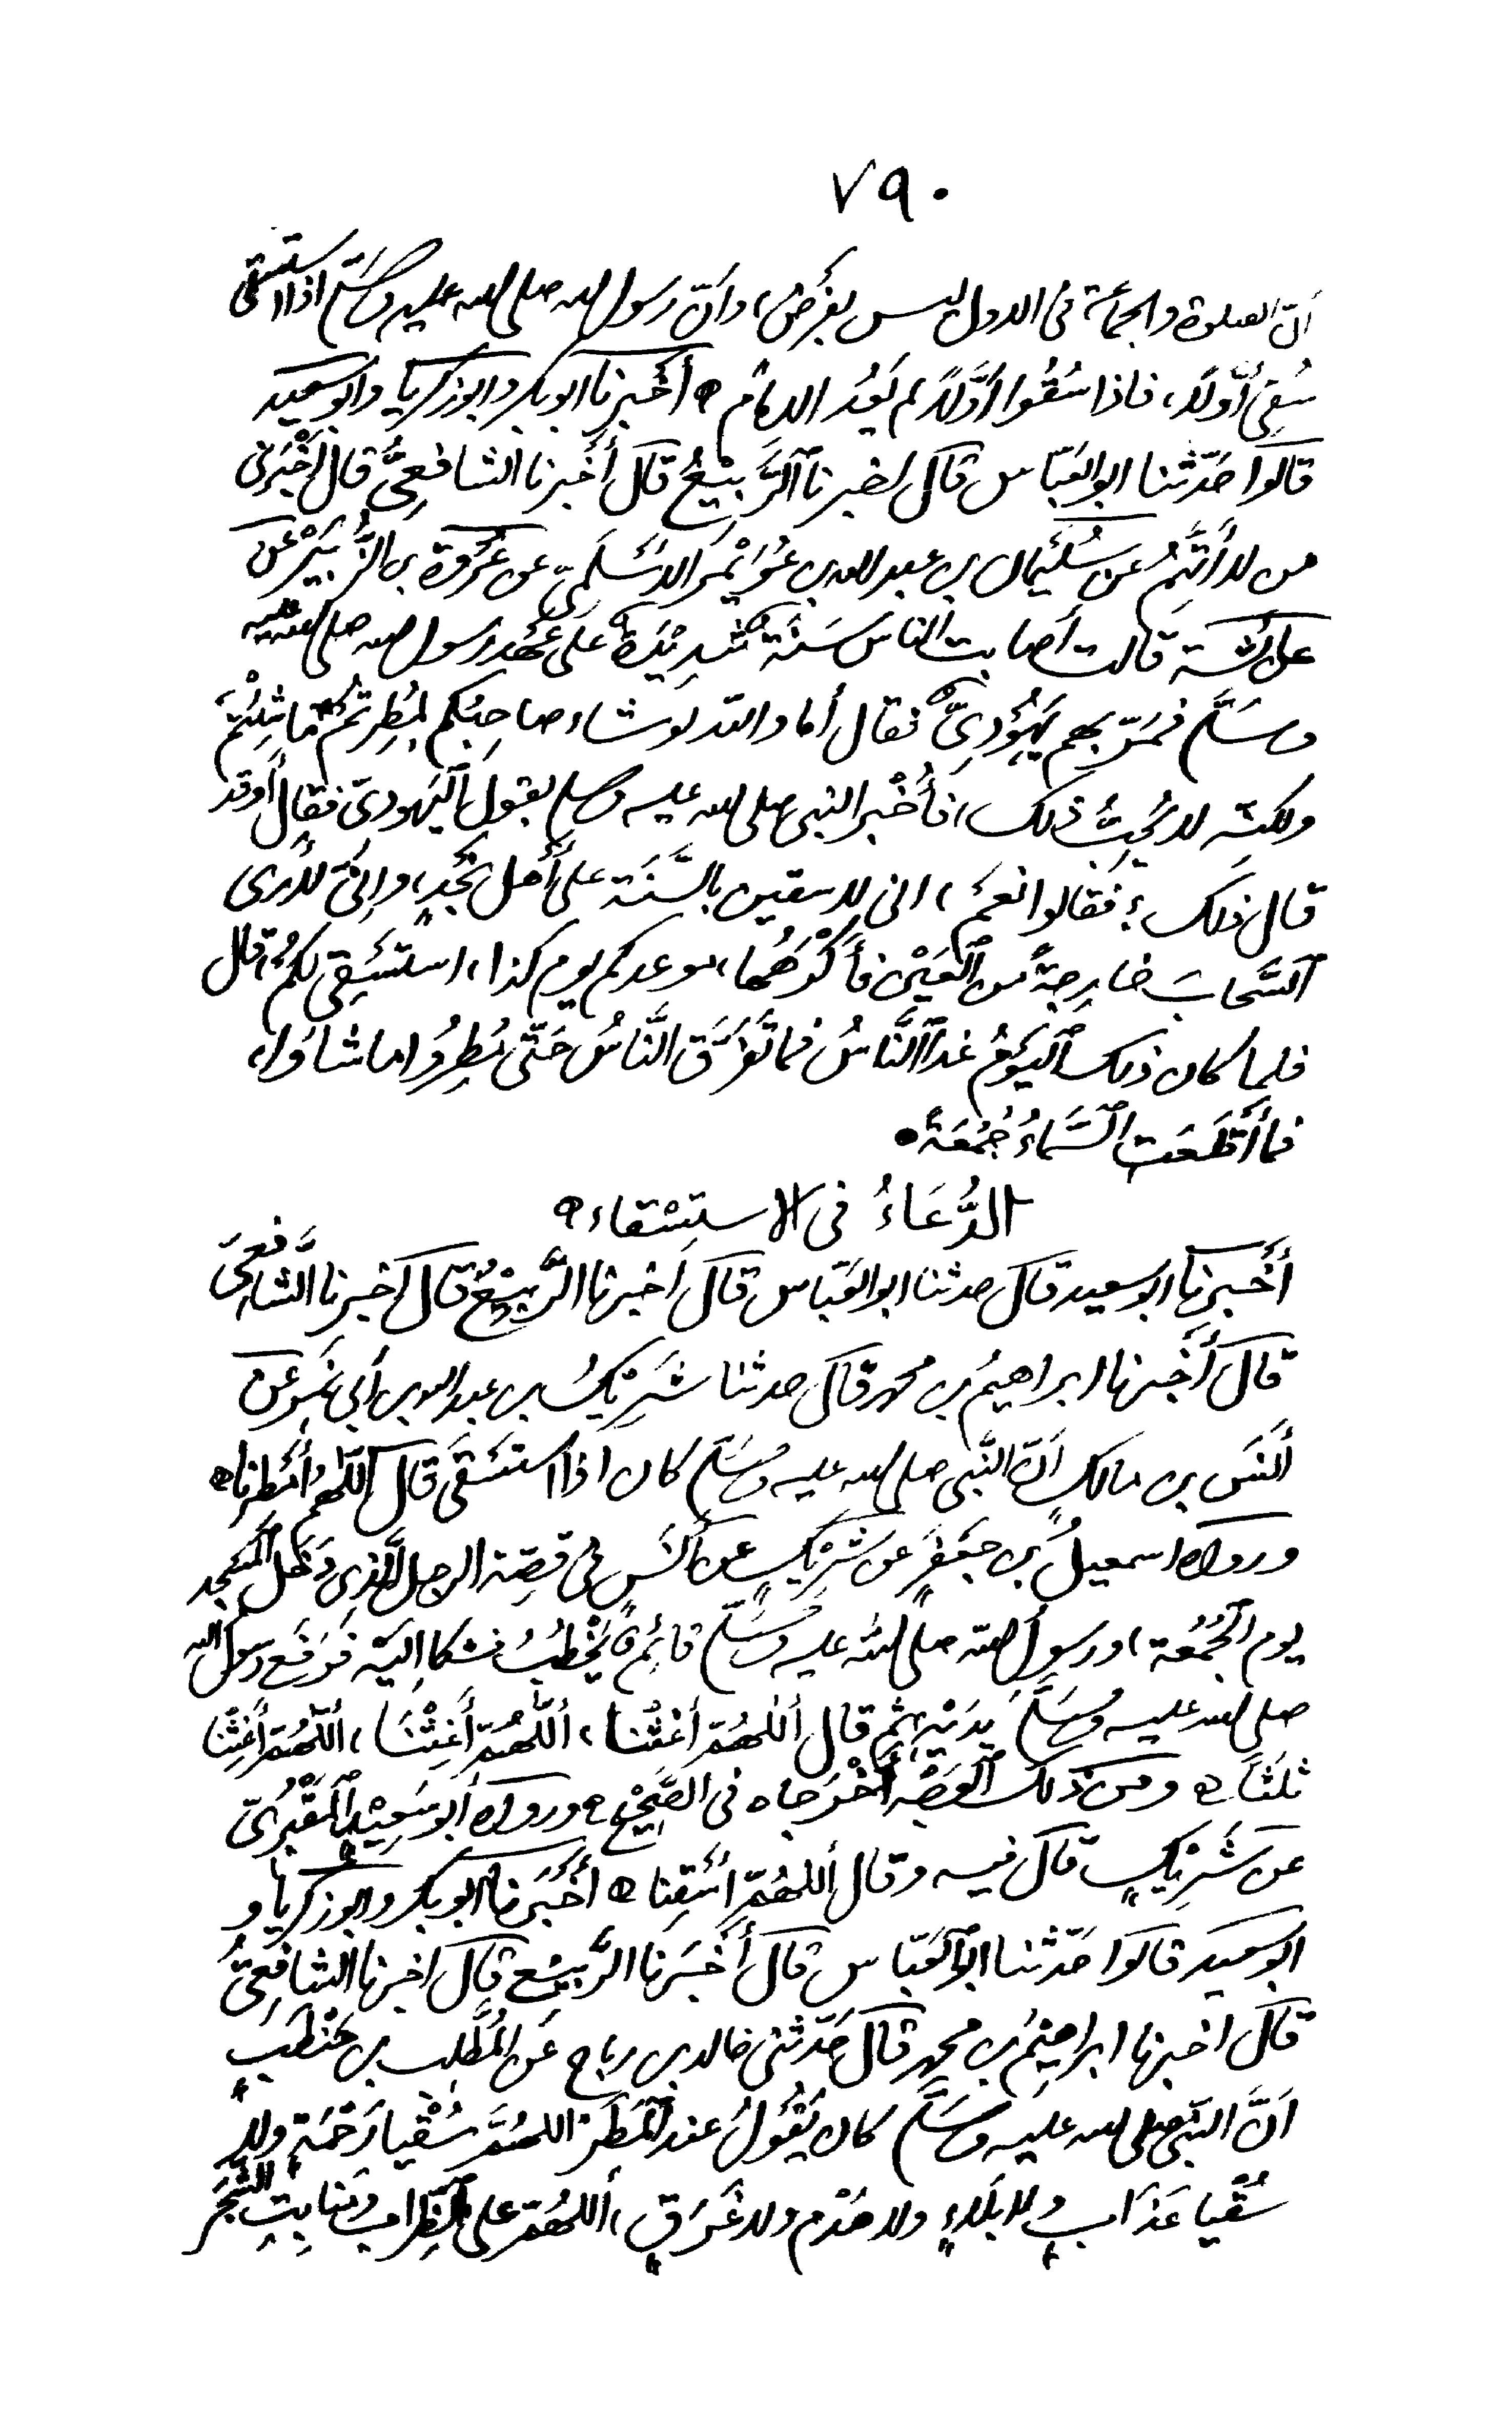 ٧٩٠
أنّ الصلوة والجماعة فى الاول ليس بفَرْضٍ، وأنّ رسول الله صلى الله عليه وسلّم اذا استسقى
سُقِىَ أوّلًا، فاذا سُقُوا أوّلًا لم يَعُد الامام ه أخبرنا ابو بكر وابو زكريا وابو سعيد
قالوا حدّثنا ابو العبّاس قال اخبرنا الرَّبيعُ قال أخبرنا الشافعىُّ قال أخبرنى
من لا أتَّهِمُ عن سُلَيمان بن عبد الله بن عُوَيْمر الاسْلَمىّ عن عُرْوة بن الزُّبَيْر عن
عائشة قالت أصابت الناسَ سَنَةٌ شديدَةٌ على عَهْد رسول الله صلى الله عليه
وسَلَّم فمَرّ بهم يَهُودىٌّ فقال أما والله لو شاء صاحِبُكم لمُطِرتُم ما شِئْتُم
ولكنّه لا يُحِبُّ ذلك، فأُخْبِر النبى صلى الله عليه وسلم بقول اليَهودىّ فقال أوقد
قال ذلك؟ فقالوا نعم، انى لاستقين بالسَّنَة على أهل نَجْدٍ، وإنّى لأرى
السَّحابَ خارجةً من العَيْن فأكْرَهُها، موعدكم يوم كذا، استَسْقِى لكُم، قال
فلما كان ذلك اليَومُ غدا النَّاسُ فما تَفَرّق النَّاسُ حَتّى مُطِرُوا ما شاؤا،
فما أَقْلَعَت السَّماءُ جُمُعَةً ه
الدُّعَاءُ فى الاستِسْقاء ه
أَخْبرنا ابو سعيد قال حدثنا ابو العَبّاس قال أخبرنا الرَّبيْعُ قال أخبرنا الشّافعىّ
قال أَخْبرنا ابراهيمُ بن محمد قال حدثنا شَرِيْكُ بن عبد الله بن أبى نَمِر عن
أنَس بن مالكٍ أنّ النَّبى صلى الله عليه وسَلَّم كان اذا استَسْقَى قال اللّهمّ أَمْطِرنا ه
ورواه اسمعيلُ بن جَعفرٍ عن شَرِيْكٍ عن أنَسٍ فى قصّة الرجل الَّذِى دَخَل المَسْجد
يوم الجُمُعَة، ورسول الله صلى الله عليه وسَلَّم قائمٌ يَخْطُبُ فشكا اليَه فرَفَعَ رسول الله
صلى الله عليه وسَلَّم يدَيْه ثم قال أللهُمّ أغثْنا، أللّهُمّ أَغِثْنَا، أللّهُمّ أَغِثْنا
ثَلثًا ه ومن ذلك الوَجْه أَخْرَجاه فى الصَّحِيْح ه ورواه أبو سَعِيْد المَقْبُرىّ
عن شَرِيْكٍ قال فيه وقال أللهُمّ اسْقِنا ه أَخْبَرنا ابو بكر وابو زكريا و
ابو سعيد قالوا حَدّثنا ابو العَبّاس قال أَخْبَرنا الرَّبِيْع قال اخبرنا الشافعىُّ
قال اخبرنا ابراهيْمُ بن محمد قال حَدّثنى خالد بن رباح عن المُطَّلب بن حَنْطَبٍ
أنّ النَّبى صلى الله عليه وسَلَّم كان يَقُولُ عند المَطَر اللهُمّ سُقْيا رَحْمَةٍ ولا
سُقْيا عَذَابٍ ولا بَلاءٍ ولا هَدْم ولا غَرَقٍ، أللهُمّ على الظِرابِ ومَنابِتِ الشَّجَر